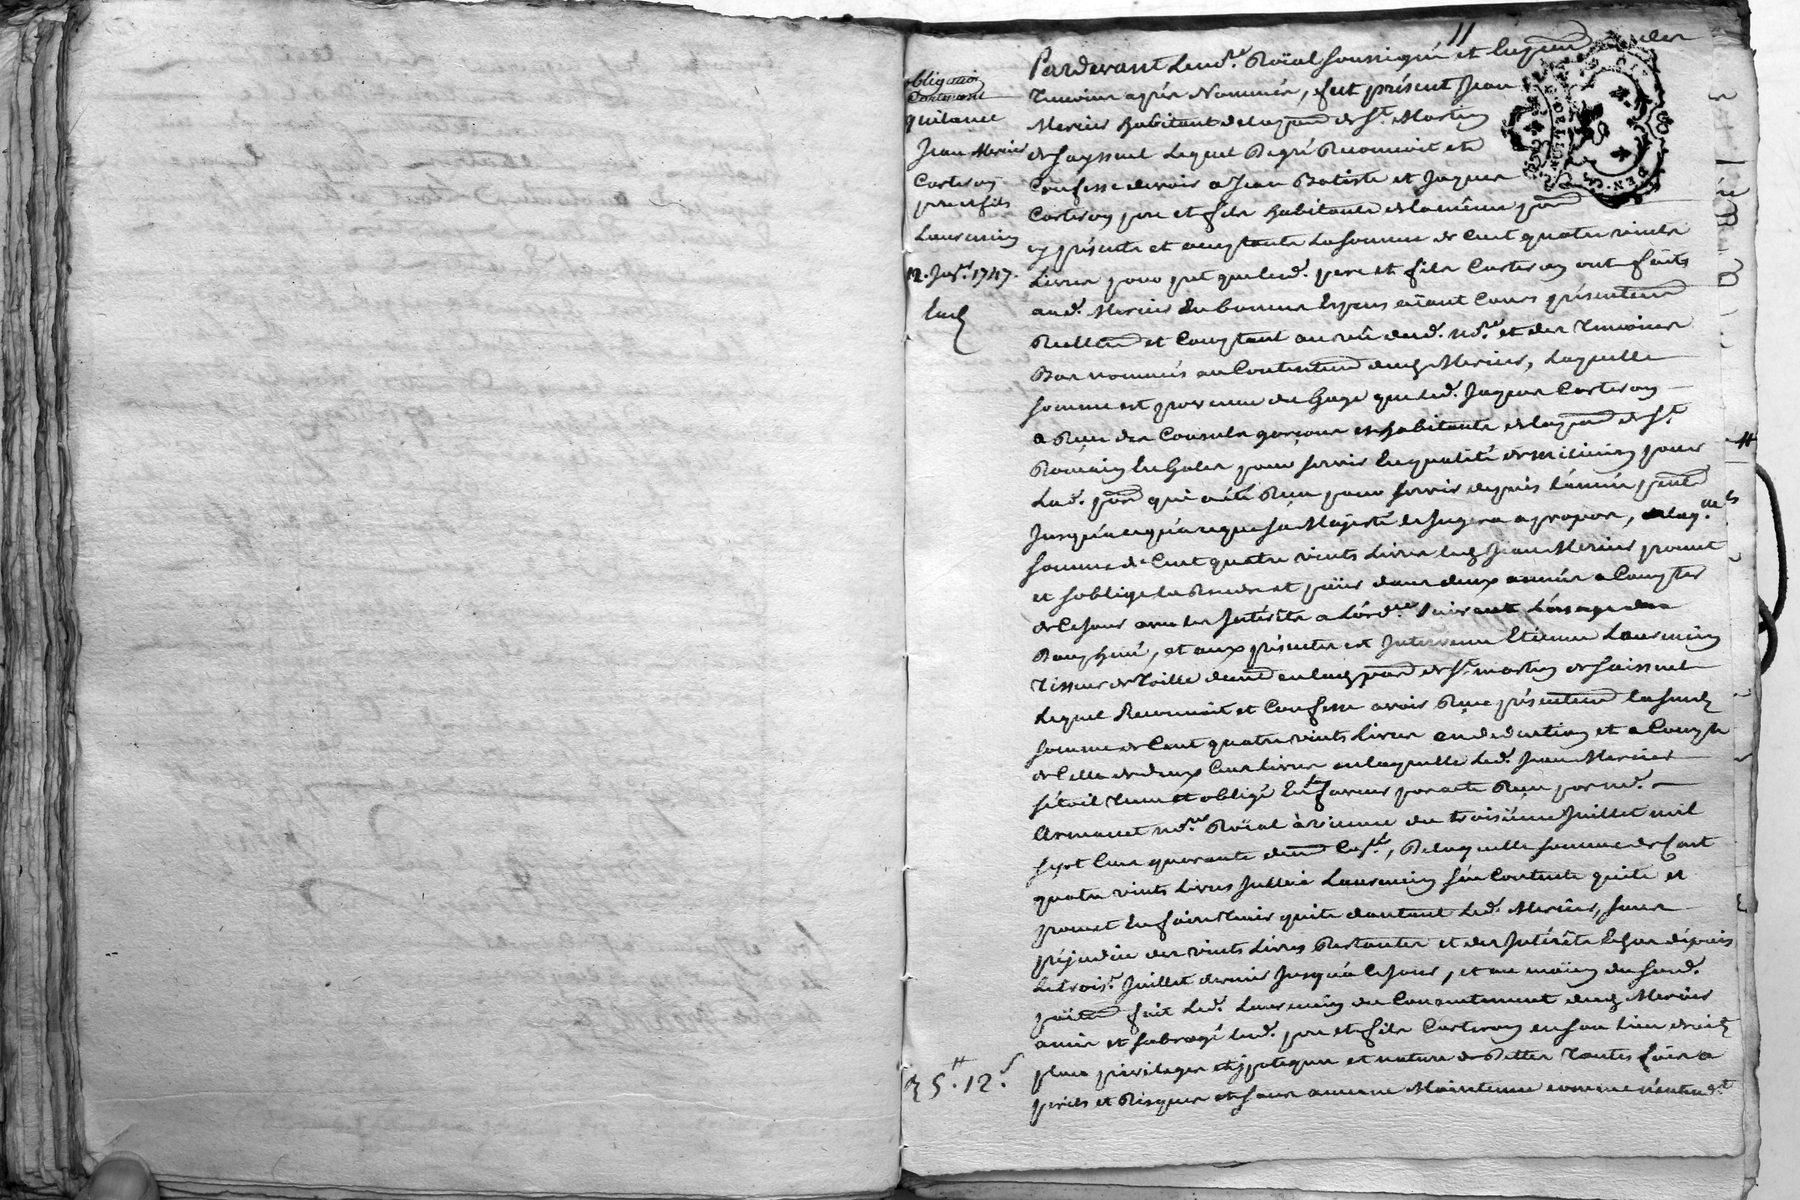 11
obligation
Contenant
quitance
Jean Mercier
Carteron
pere et fils
Laurencin
12. Janr. 1747.
Pardevant le nore. Roïal soussigné et en prnce des
temoins après Nommés, fut présent Jean
Mercier habitant de la parr. de St. Martin
de sayssuel Lequel De gré Reconnoit et
Confesse devoir a Jean Batiste et Jaques
Carteron pere et fils habitants de la même parr.
cy présents et acceptants La somme de Cent quatre vints
Livres pour pret que lesd. pere et fils Carteron ont faits
aud. Mercier En bonnes Especes aïant Cours présentemt
Reellemt et Comptant au vû dud. nore. et des temoins
Bas nommés au Contentemt dud. Mercier, Laquelle
somme est provenue du Gage que led. Jaques Carteron
a Reçu des Consuls garçons et habitants de la parr. de St.
Romain En Galer pour servir En qualité de milicien pour
Lad. parr. qui a été Reçu pour servir depuis l'année
Jusqu'a ce que sa Majesté le Jugera a propos, la
somme de Cent quatre vints Livres led. Jean Mercier promet
et s'oblige la Rendre et païer dans deux années a Compter
de Ce Jour avec les Intérêts a l'ordre. suivant L'usage du
Dauphiné, et aux présentes est Intervenu Etienne Laurencin
Tisseur de Toille demt en lad. parr. de St. martin de saissuel
Lequel Reconnoit et Confesse avoir Reçu présentemt la susd.
somme de Cent quatre vints Livres en deduction et a Compte
de Celle de deux Cens Livres en laquelle led. Jean Mercier
s'étoit tenu et obligé En sa faveur par acte Reçu par Me.
Armanet nore. Roïal à vienne du troisième Juillet mil
sept Cens quarante , De laquelle somme de Cent
quatre vints Livres Laurencin s'en Contente quite et
promet En faire tenir quite d'autant led. Mercier, sans
préjudice des vints Livres Restantes et des Intérêts Echus depuis
Le trois. Juillet dernier Jusqu'a Ce Jour, et au moïen du susd.
païemt fait led. Laurencin du Consentement dud. Mercier
a mis et subrogé lesd. pere et fils Carteron en son lieu droit
place privileges et hypoteques et nature de Dettes toutes fois a
perils et Risques et sans aucune Maintenue comme n'entendt
35tt. 12s.